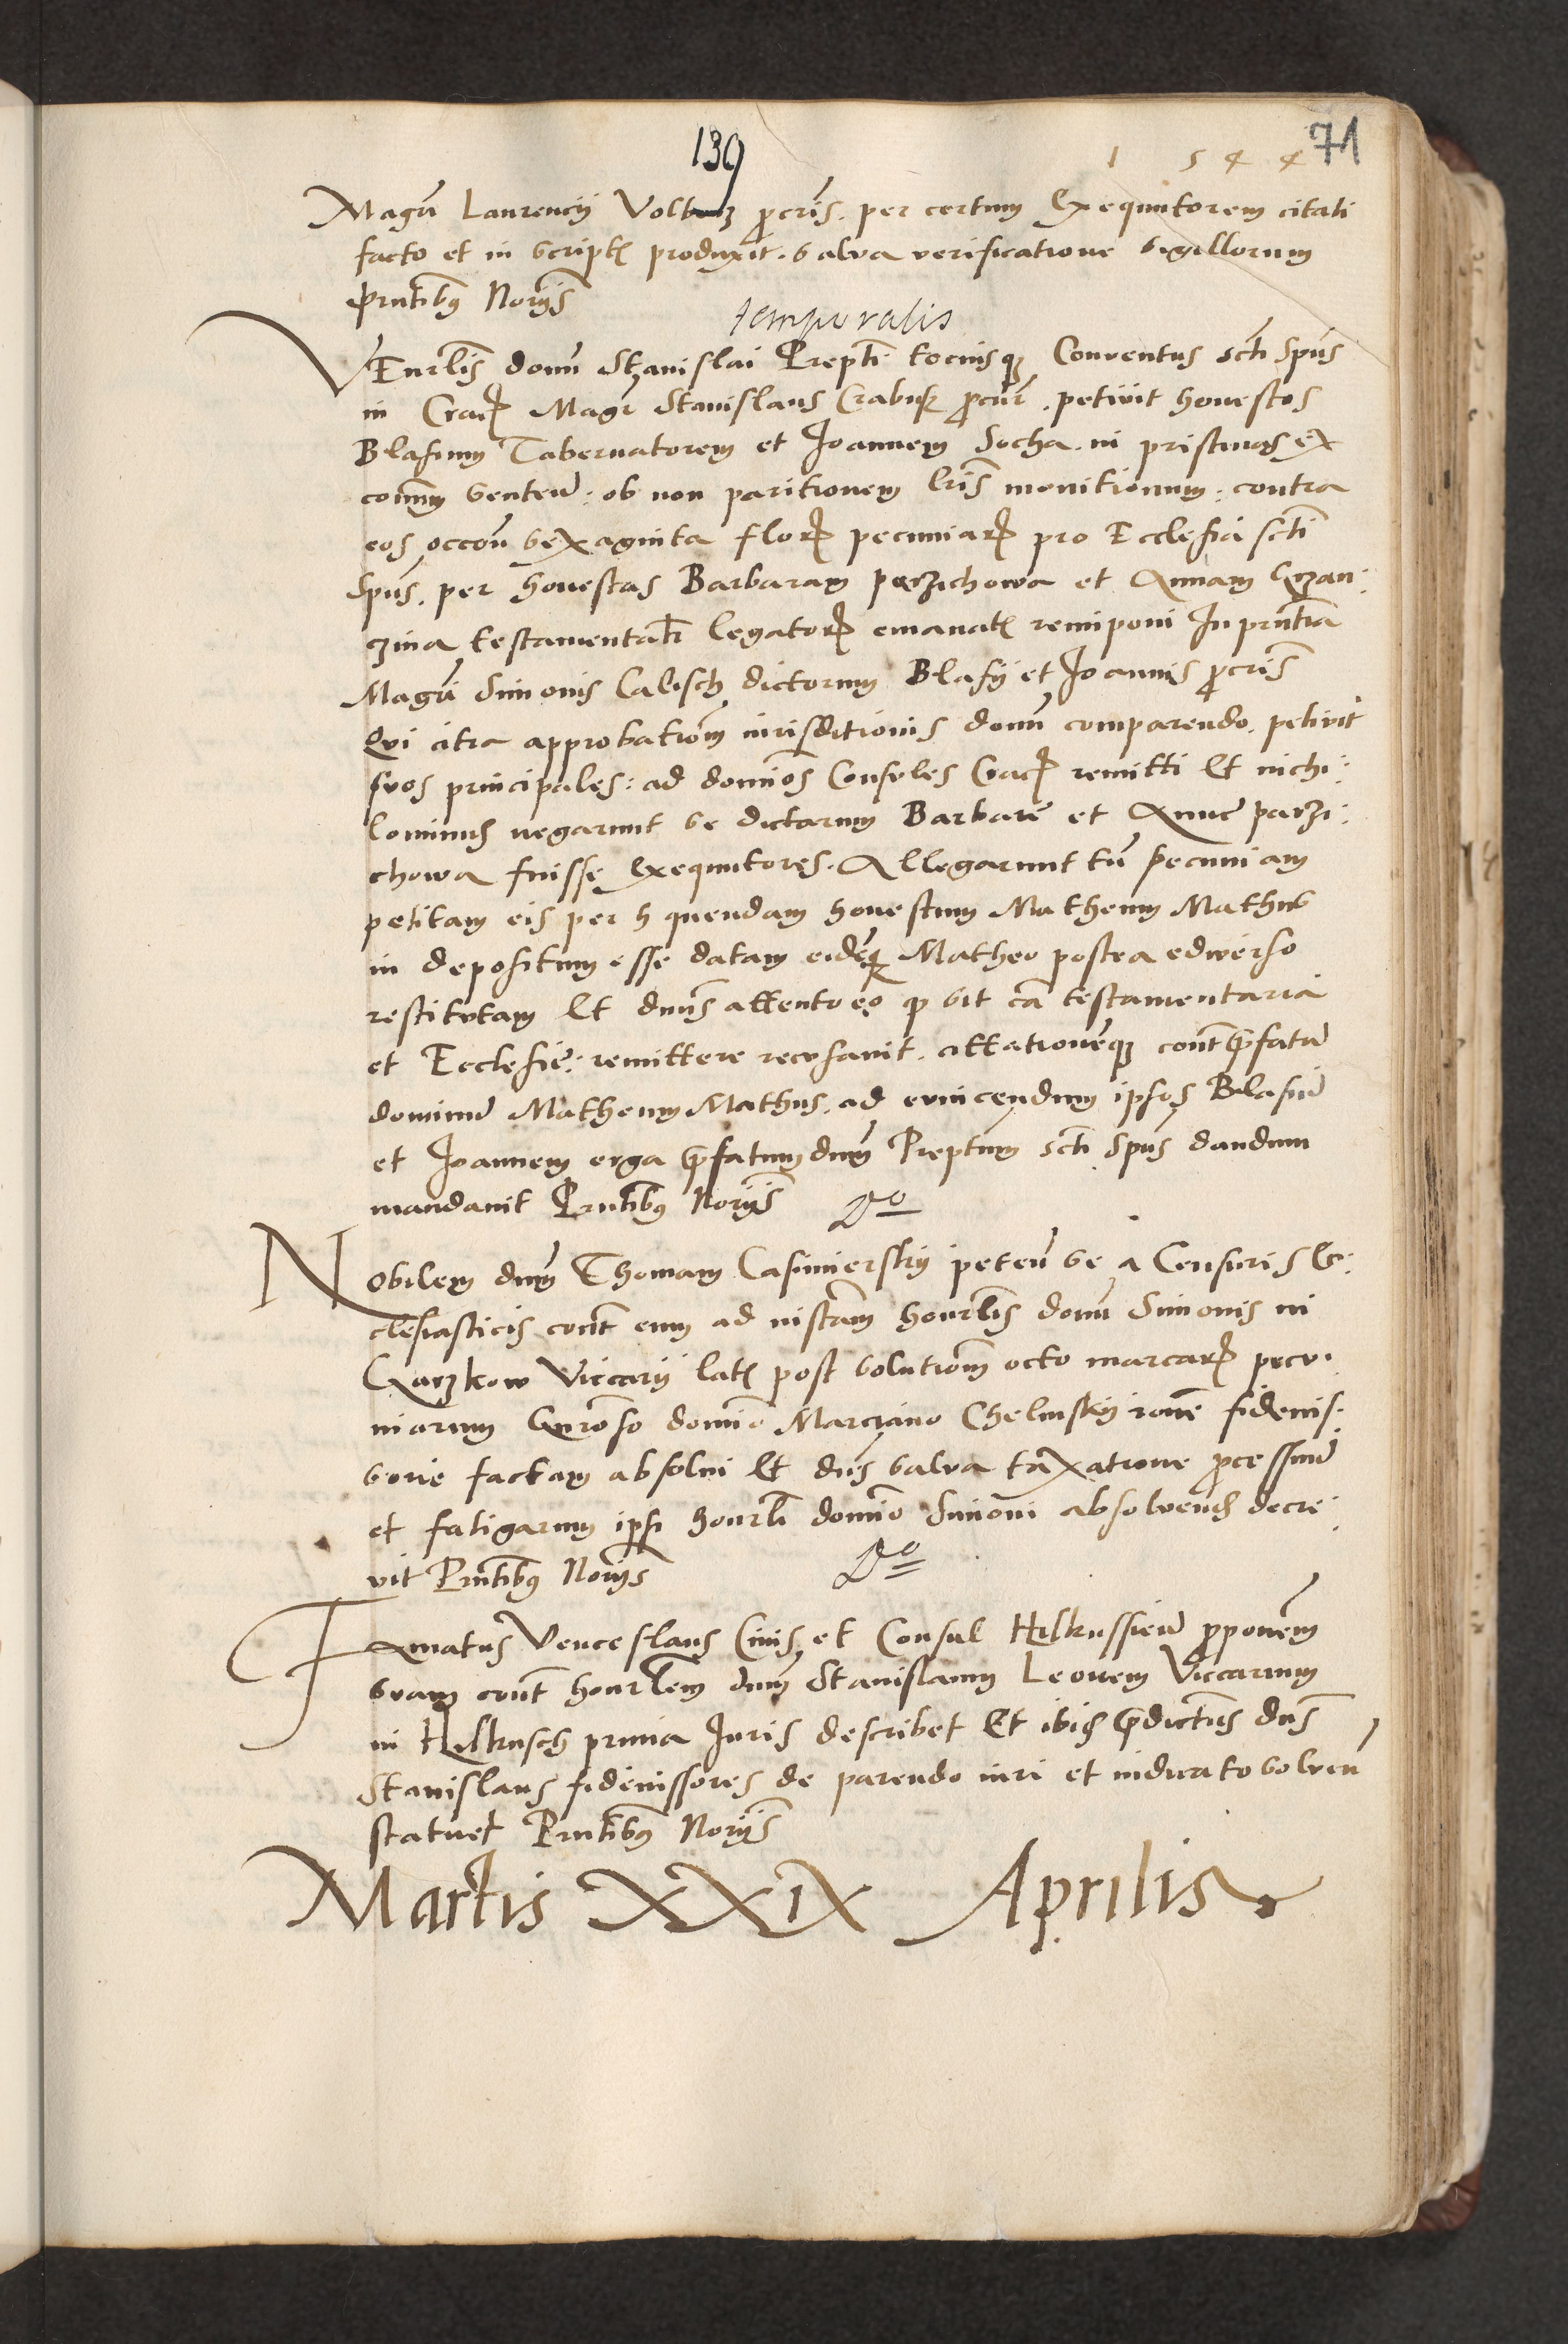 139
1 5 4 4 71
Magri Laurencij Voltusz procris. per certum Exequutorem citati
facto et in script produxit. salva verificatione sigillorum
Prntibus Norijs
temporalis
VEnrlis domni Stanislai Prepti tociusque Conventus scti Spus
in Crac Magr Stanislaus Grabusk procur. petivit honestos
Blasium Tabernatorem et Joannem Socha. in pristinas ex
comm senten: ob non paritionem lris monitionum: contra
eos occon sexaginta flor pecuniar pro Ecclesia scti
Spus. per honestas Barbaram parzichowa et Annam Grzan:
czina testamentati legator emanat reimponi In prntia
Magri Simonis Calisch dictorum Blasij et Joannis procris
Qui citra approbatiom iurisditionis domni comparendo. petivit
suos principales: ad dominos Consules Crac remitti Et nichi:
lominus negarunt se dictarum Barbare et Anne parzi:
chowa fuisse Exequutores. Allegarunt tn pecuniam
petitam eis per h quendam honestum Matheum Mathus
in depositum esse datam eidemque Matheo postea edwerso
restitutam Et dnus attento eo quod sit ca testamentaria
et Ecclesie: remittere recusavit. cittationemque cont prefatum
dominum Matheum Mathus. ad evincendum ipsos Blasium
et Joannem erga prefatum dnum Preptum scti Spus dandum
mandavit Prntibus Norijs Do
Nobilem dnum Thomam Casimierskij peten se a Censuris Ec:
clesiasticis cont eum ad instam honrlis domni Simonis in
Garzkow Viccarij lat post solutiom octo marcar pecu:
niarum Gnroso domino Marciano Chelmskij rone fideius:
sorie factam absolvi Et dns salva taxatione processuum
et fatigarum ipsi honrli domino Simoni absolvend decre:
vit Prntibus Norijs Do
Famatus Venceslaus Civis et Consul Hilkussien proponem
suam cont honrlem dnum Stanislaum Leonem Viccarium
in Hilkusch prima Juris describet Et ibid predictus dns
Stanislaus fideiussores de parendo iuri et iudicato solven
statuet Prntibus Norijs
Martis XXIX Aprilis